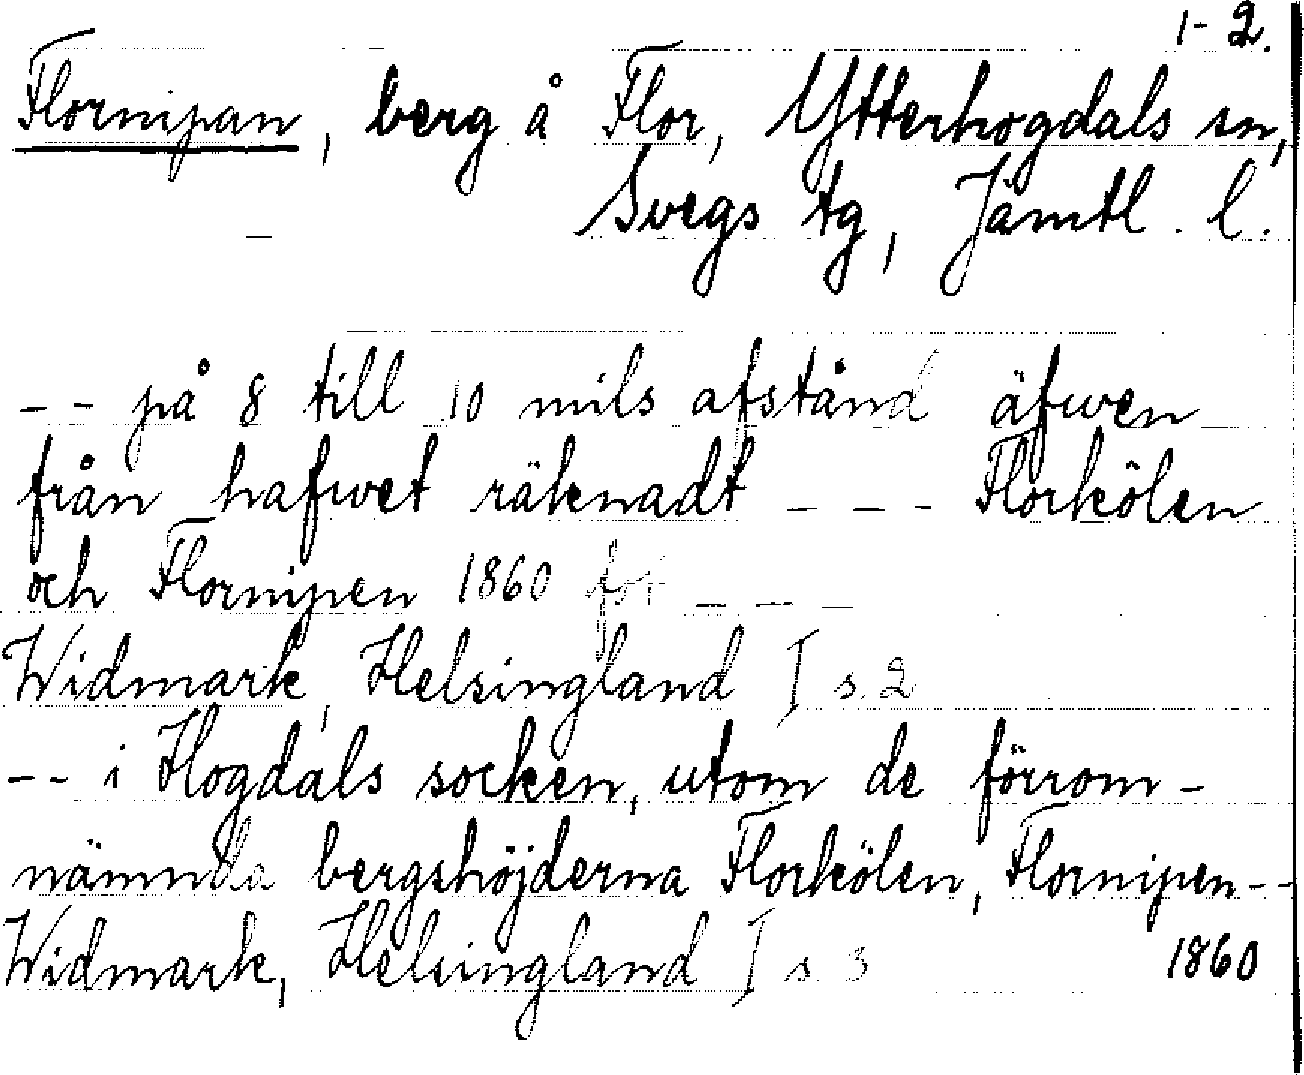 1-2.
Flornipan, berg å Flor, Ytterhogdals sn,
Svegs tg, Jämtl. l.
-- på 8 till 10 mils afstånd äfwen
från hafwet räknadt --- Florkölen
och Flornipen 1860 fot ---
Widmark, Helsingland I s. 2
-- i Hogdals socken, utom de förrom-
nämnda bergshöjderna Florkölen, Flornipen--
Widmark, Helsingland I s 3 1860